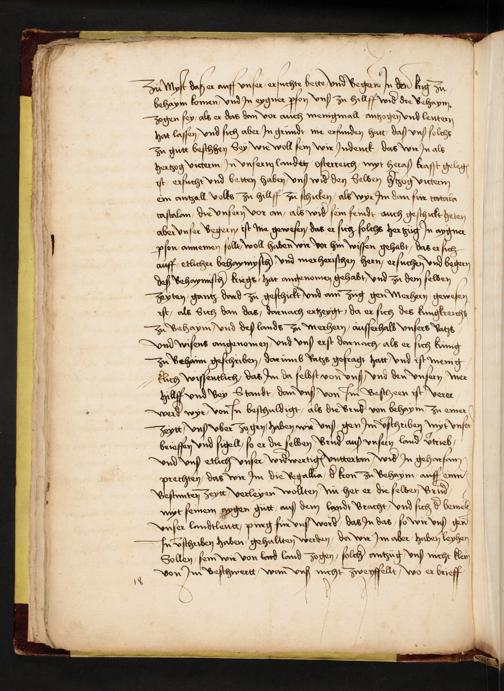 zu Myst das er auff unser ersuchte bette und Begern In den krig zu
behaym komen und In eygner pson uns zu hilff wid die Behaym
zogen sey als er das dan vor auch menigmall anzogen und leutern
hat lassen und sich aber In grundt nie erfunden hatt das uns solchs
zu gutt beschhen sey wie woll sein wir Indenck das wir In als
hertzog victorin In unserm landen osterreich myt heras krafft gelegen
ist ersucht und betten haben uns wid den selben htzog victorin
ein antzall volks zu hilff zu schicken als wir Im dan sin
die unsern vor an als wid sein feindt auch geschickt heten
aber unser Begern ist nie gewesen das er sich solchs hertzug In aygner
pson annemen solle woll haben wir vor hin wissen gehabt das er sich
auff etlicher behaymysch und merherischen hern ersuchen und begern
des Behaymisch kriegs hat angenomen gehabt und zu den selben
zeyten gantz dard zu geschickt und am zug gen Merhern gewesen
ist als Sich dan das darnach ertzeygt da er sich des kungkreichs
zu Behaym und des lands zu merhern ausserhalb unsers Rats
und wisens angenomen und uns erst darnach als er sich kunig
zu Behaim geschriben darumb Rats gefragt hatt und ist menig
klich wissentlich das Im da selbst von uns und den unsern mer
hilff und Bey Standt dan uns von Im Beschhen ist
werd wyr von Im beschuldigt als die Brud von behaym zu einer
zeytt uns uber zogen haben wir uns gen Im vschriben myt unser
brieffen und sigell so er die selben Brud aus unsern land vtrieb
und uns etlich unser widwertig unttertan wid In gehorsam
prechten das wir Im die Regallia d kron zu Behaym auff ein
bestimten zeytt verleyen wollten nu het er die selben Brud
myt seinem aygen gutt aus dem landt Bracht und sich d
unser landtleutt uns word das In das so wir uns gen
Im vschriben haben gehallten werden da wir Im aber haben leyhen
Sollen sein wir von land land zogen solch antzug uns nicht klein
von Im beschwertt wan uns nicht zweyffellt wo er brieff
18